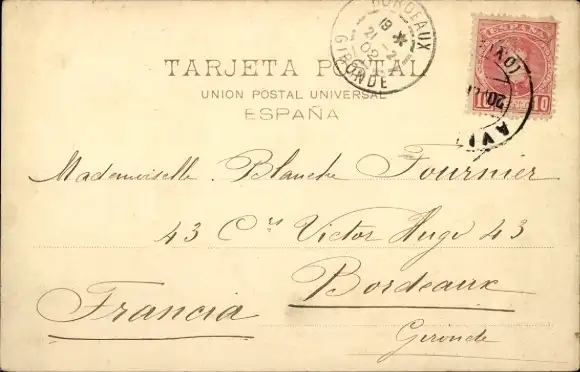 BORDEAUX
GIRONDE
ESPAÑA
10 10
TARJETA POSTAL
UNION POSTAL UNIVERSAL
ESPAÑA
Mademoiselle Blanche Fournier
43 Crs Victor Hugo 43
Bordeaux
Francia
Gironde